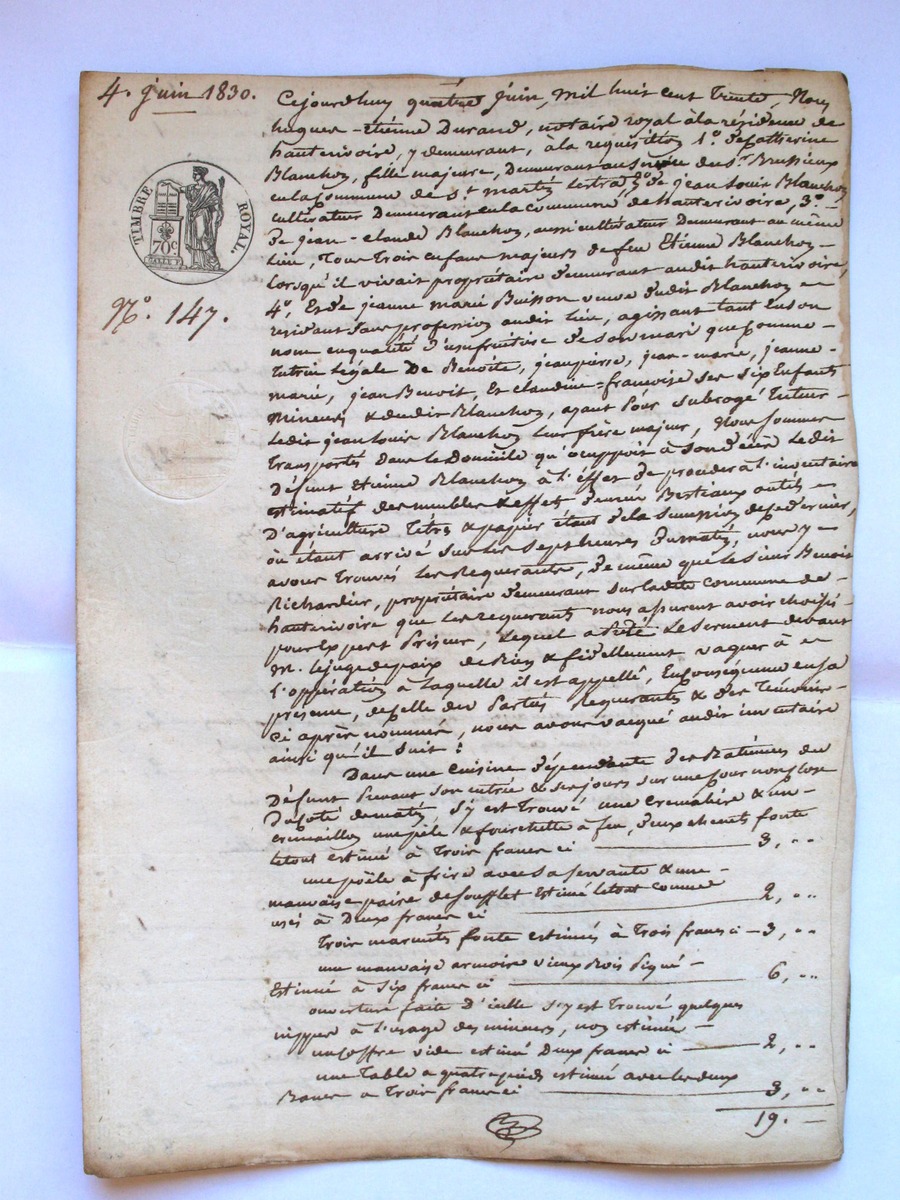 4. juin 1830.
TIMBRE ROYAL.
70c
N.o 147.
Cejourdhuy quatre juin, mil huit cent trente, Nous
hugues-étienne Durand, notaire royal à la résidence de
hauterivoire, y demeurant, à la requisition 1.o de Catherine
Blanchon, fille majeure, Demeurant au service de Sr. Brussieux
en la Commune de St. martin Lestra, 2.o de jean Louis Blanchon
cultivateur Demeurant en la commune de hauterivoire, 3.o
De jean-claude Blanchon, aussi cultivateur Demeurant au même
Lieu, Tous Trois enfans majeurs de feu Etienne Blanchon
lorsqu'il vivait propriétaire demeurant audit hauterivoire,
4.o Et de jeanne marie Buisson veuve dudit Blanchon
residant sans profession audit Lieu, agissant tant en son
nom en qualité d'usufruitière de son mari que comme
Tutrice Légale De Benoite, jean pierre, jean-marie, jeanne
marie, jean Benoit, Et claudine-françoise ses six Enfants
mineurs & dudit Blanchon, ayant pour subrogé Tuteur
Ledit jean Louis Blanchon leur frère majeur, Nous sommes
Transportés Dans le Domicile qu'occuppoit à son décès Ledit
Défunt étienne Blanchon à l'effet de proceder à l'inventaire
estimatif des meubles & effets Bestiaux outils
D'agriculture Titres & papier étant de la succession de ce dernier,
où étant arrivé sur les sept heures du matin, nous y
avons Trouvés les Requerants, de même que le sieur Benoit
Richardier, propriétaire demeurant sur ladite Commune de
hauterivoire que les requerants nous assurent avoir choisi
pour Expert Priseur, Lequel a prété le serment devant
M. le juge de paix de Bien & fidellement vaquer à
l'opération à laquelle il est appellé, En conséquence en sa
présence, de celle des Parties Requerantes & des Témoins
ci après nommés, nous avons vacqué audit inventaire
ainsi qu'il suit :
Dans une Cuisine dépendante des Batimens du
Défunt prenant son entrée & ses jours sur une cour non close
Du coté de matin, s'y est Trouvé une cremalière & un
cremaillon une pèle & fourchette à feu, deux chenets fonte
le tout estimé à Trois francs ci 3, "
une poële à frire avec sa servante & une
mauvaise paire de soufflet Estimé le tout comme
usés à Deux francs ci 2, "
Trois marmites fonte estimées à Trois francs ci 3, "
une mauvaise armoire vieux Bois piqué
Estimée à Six francs ci 6, "
ouverture faite D'icelle s'y est Trouvé quelques
nippes à l'usage des mineurs, non estimées
un Coffre vide estimé Deux francs ci 2, "
une Table a quatre pieds estimé avec les deux
Bancs a Trois francs ci 3, "
19. —